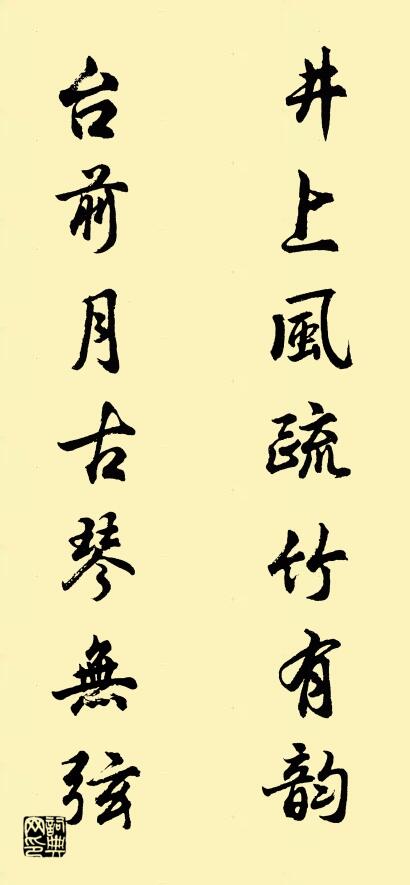 井上風疏竹有韵
台前月古琴無弦